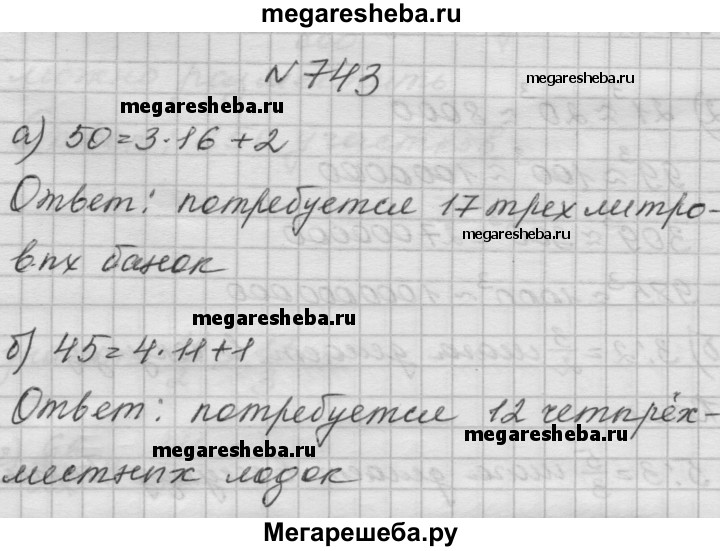 megaresheba.ru
N 743
megaresheba.ru
megaresheba.ru
а) 50=3·16+2
Ответ: потребуется 17 трехлитро-
megaresheba.ru
вых банок
megaresheba.ru
б) 45=4·11+1
Ответ: потребуется 12 четырёх-
megaresheba.ru
megaresheba.ru
местных лодок
Мегарешеба.ру